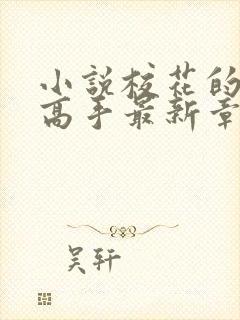 小説校花的
高手最新章
吴轩